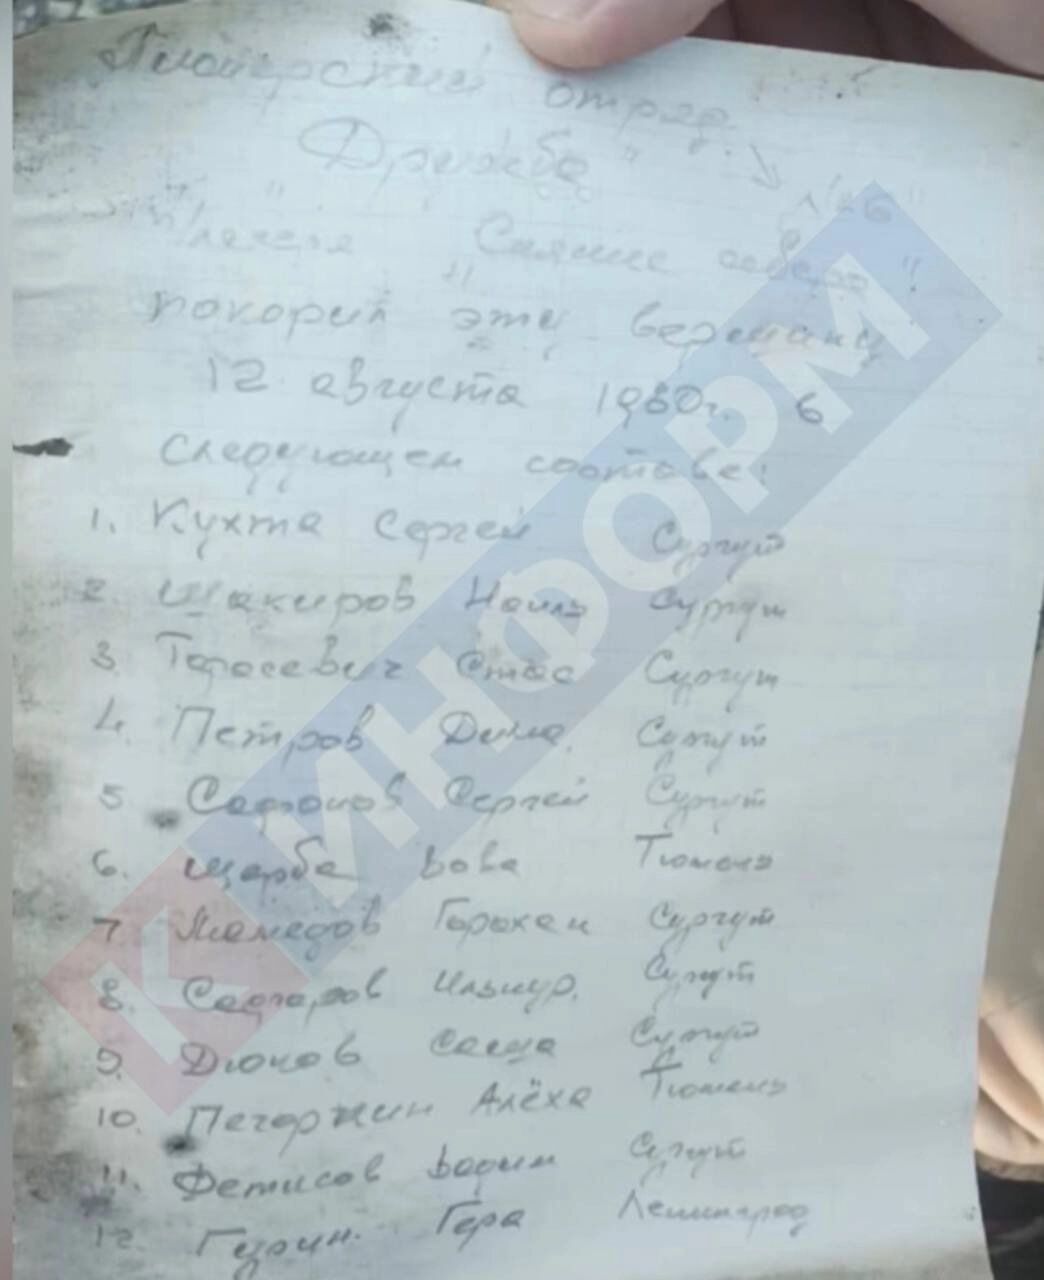 Пионерский отряд
"Дружба"
п/лагеря "Сияние севера"
покорил эту вершину
12 августа 1980г. в
следующем составе:
1. Кухта Сергей Сургут
2. Шакиров Наиль Сургут
3. Тарасевич Стас Сургут
4. Петров Дима Сургут
5 Сафонов Сергей Сургут
6. Щерба Вова Тюмень
7 Мамедов Сургут
8. Саттаров Ильнур. Сургут
9. Дюков Саша Сургут
10. Печоркин Алёха Тюмень
11. Фетисов Вадим Сургут
12. Гурин. Гера Ленинград
КИНФОРМ